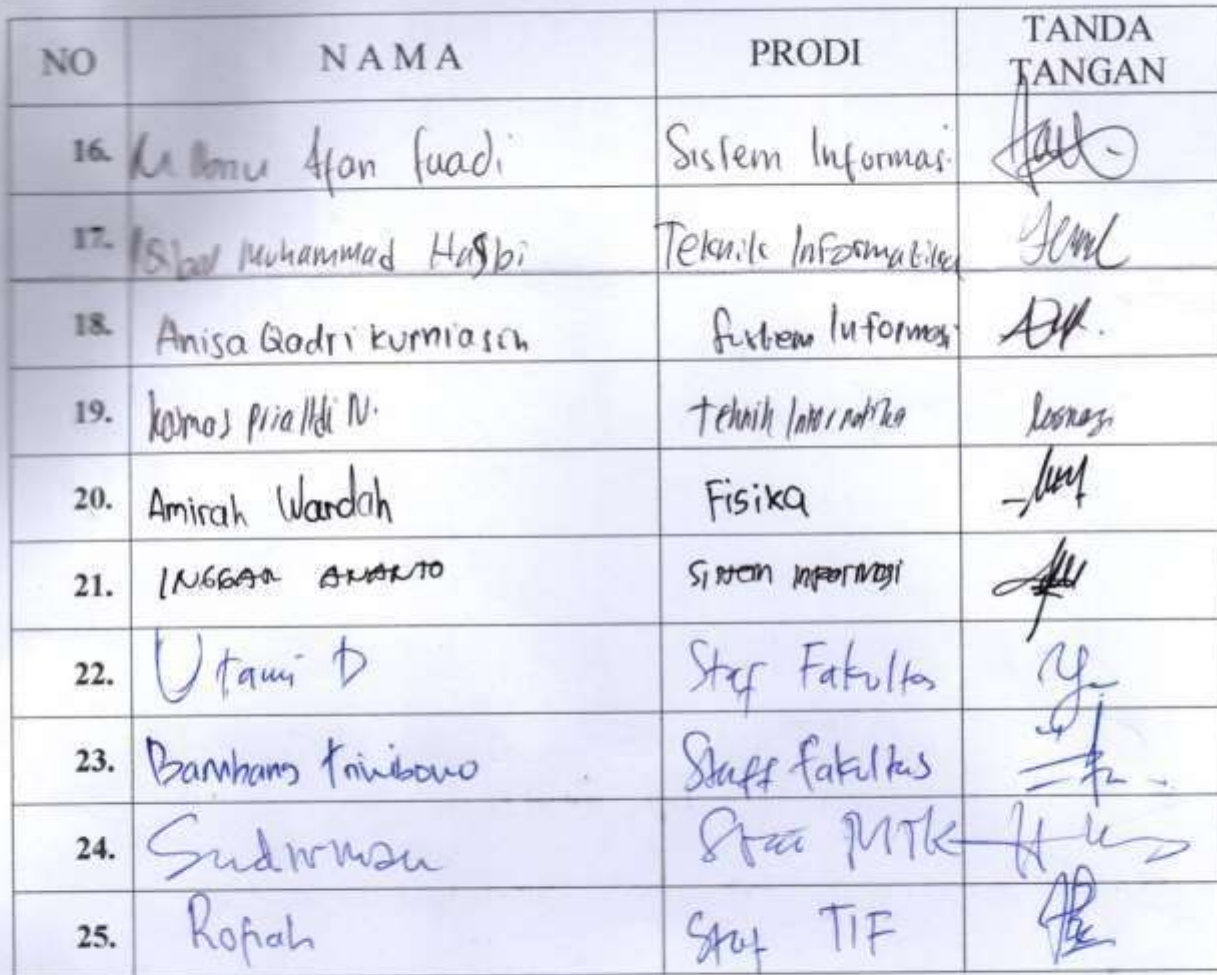 NO NAMA PRODI TANDA TANGAN
16. Afan fuadi Sistem Informasi
17. Muhammad Hasbi Teknik Informatika
18. Anisa Qadri kurniasih Sistem Informasi
19. N. Teknik Informatika
20. Amirah Wardah Fisika
21. INGGAR ANANTO Sistem informasi
22. Utami D Staf Fakultas
23. Bambang Triwibowo Staff fakultas
24. Sudirman Staf MTK
25. Rofiah Staf TIF